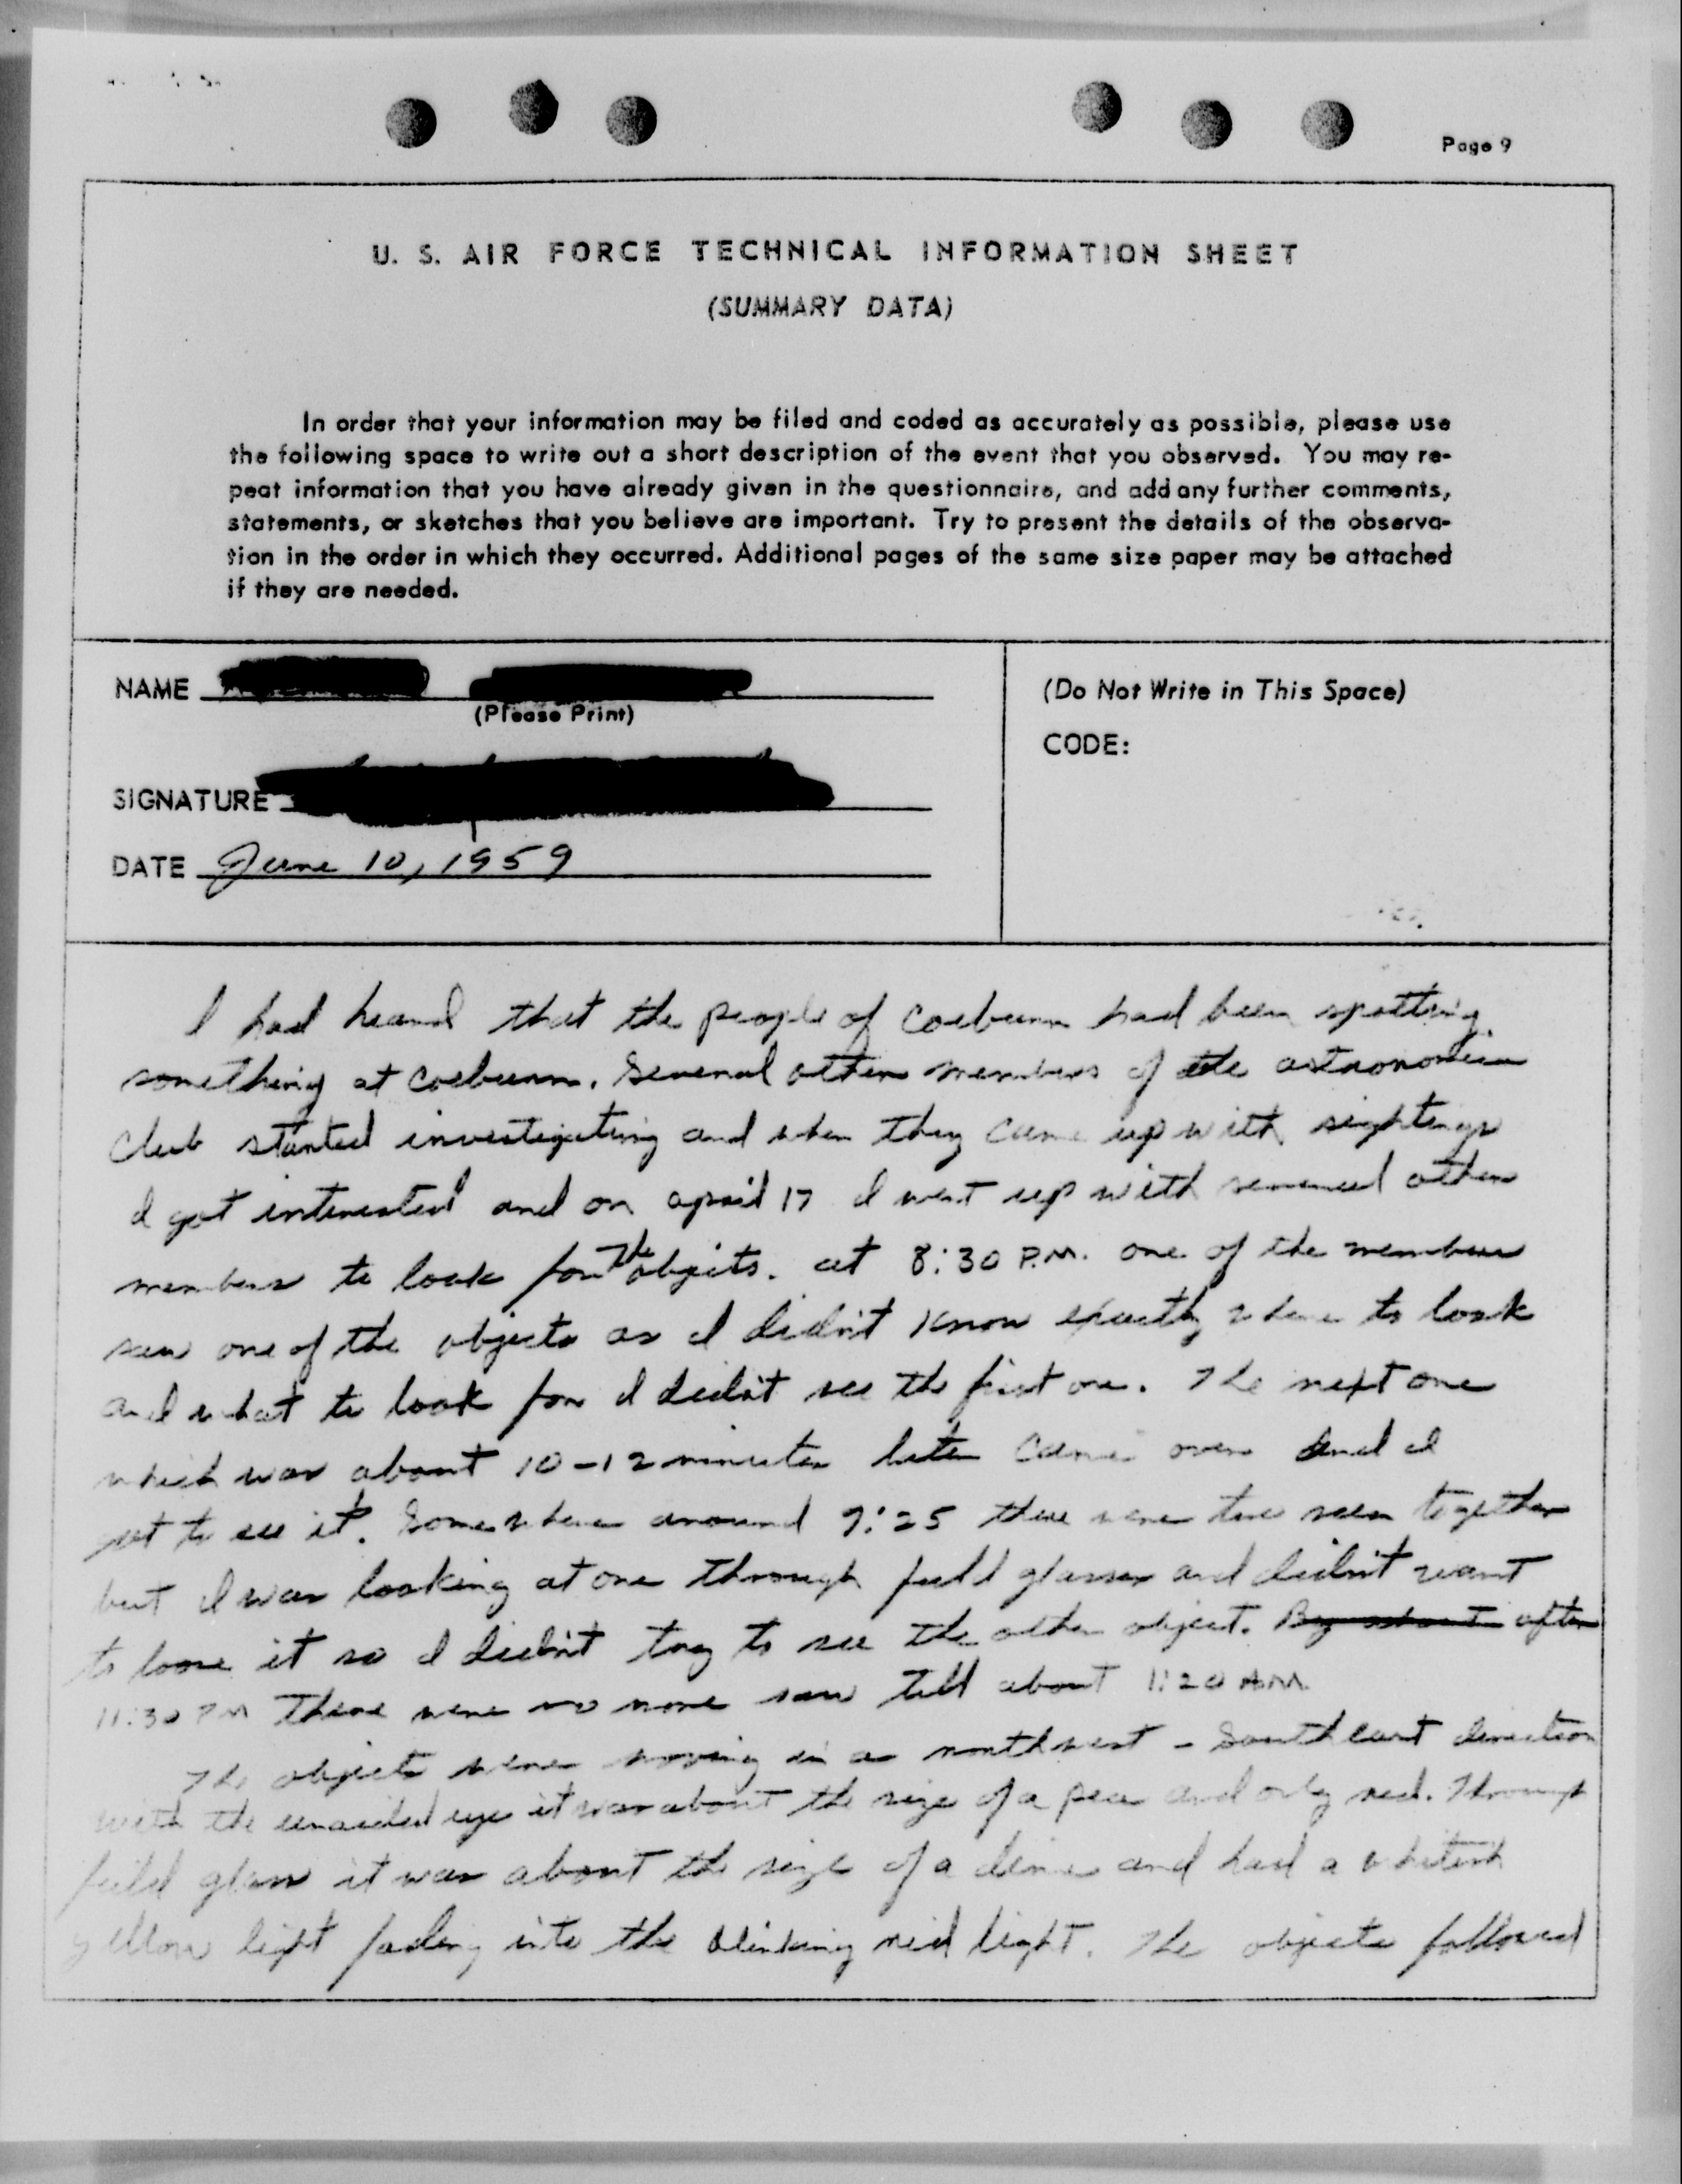 Page 9
U. S. AIR FORCE TECHNICAL INFORMATION SHEET
(SUMMARY DATA)
In order that your information may be filed and coded as accurately as possible, please use
the following space to write out a short description of the event that you observed. You may re-
peat information that you have already given in the questionnaire, and add any further comments,
statements, or sketches that you believe are important. Try to present the details of the observa-
tion in the order in which they occurred. Additional pages of the same size paper may be attached
if they are needed.
NAME
(Please Print)
SIGNATURE
DATE June 10, 1959
(Do Not Write in This Space)
CODE:
I had heard that the people of Coeburn had been spotting
something at Coeburn. Several other members of the
Club started investigating and when they came up with sightings
I got interested and on april 17 I went up with several other
members to look for the objects. at 8:30 P.M. one of the members
saw one of the objects as I didn't know exactly where to look
and what to look for I didn't see the first one. The next one
which was about 10-12 minutes later came over and I
got to see it. Somewhere around 9:25 there were two seen together
but I was looking at one through field glasses and didn't want
to loose it so I didn't try to see the other object. By about after
11:30 PM There were no more saw till about 1:20 AM
The objects were moving in a northwest - Southeast direction
with the unaided eye it was about the size of a pea and only red. Through
field glass it was about the size of a dime and had a whitish
yellow light fading into the blinking red light. The objects followed